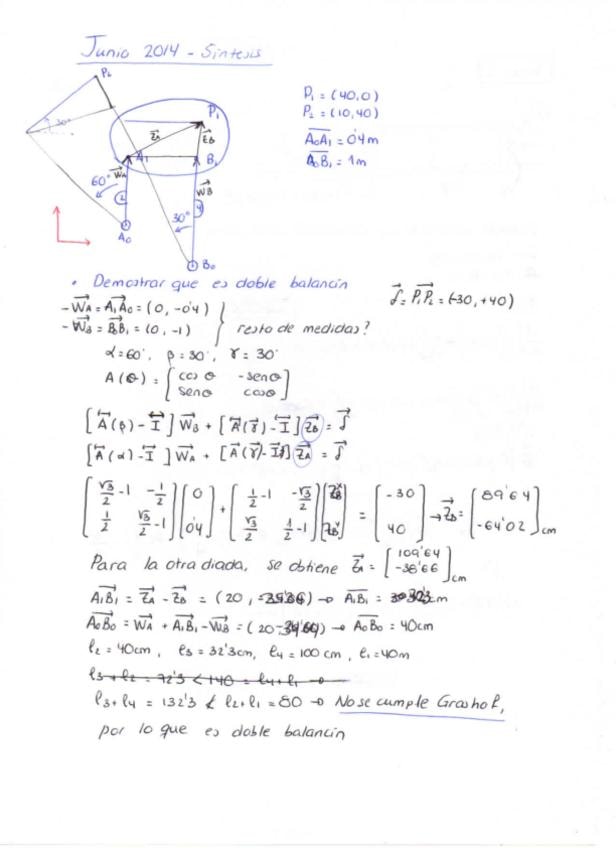 Junio 2014 - Síntesis
P₂
30°
P₁
Z⃗A
E⃗B
A₁
B₁
W⃗A
60°
2
W⃗B
4
30°
A₀
B₀
P₁ = (40,0)
P₂ = (10,40)
A₀A₁ = 0'4m
A₀B₁ = 1m
• Demostrar que es doble balancín
δ⃗ = P₁P₂ = (-30, +40)
-W⃗A = A₁A₀ = (0, -0'4)
-W⃗B = B₀B₁ = (0, -1)
} resto de medidas?
α = 60°, β = 30°, γ = 30°
A(θ) = [cos θ -sen θ
sen θ cos θ]
[A(β) - I] W⃗B + [A(γ) - I] Z⃗B = δ⃗
[A(α) - I] W⃗A + [A(γ) - I] Z⃗A = δ⃗
[√3/2 - 1 -1/2
1/2 √3/2 - 1] [0
0'4] + [1/2 - 1 -√3/2
√3/2 1/2 - 1] [ZBˣ
ZBʸ] = [-30
40] → Z⃗B = [89'64
-64'02] cm
Para la otra diada, se obtiene Z⃗A = [109'64
-38'66] cm
A₁B₁ = Z⃗A - Z⃗B = (20, ) → A₁B₁ = cm
A₀B₀ = W⃗A + A₁B₁ - W⃗B = (20 ) → A₀B₀ = 40cm
l₂ = 40cm, l₃ = 32'3cm, l₄ = 100 cm, l₁ = 40m
l₃ + l₂ = 72'3 < 140 = l₄ + l₁ →
l₃ + l₄ = 132'3 ≮ l₂ + l₁ = 80 → No se cumple Grashof,
por lo que es doble balancín